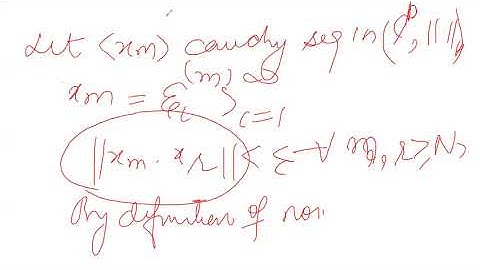 Let <xm> cauchy seq in (l^p, || ||),
xm = ξ_i^(m) }^∞_i=1
||xm - xr|| < ε ∀ m, r ≥ N,
By definition of nor